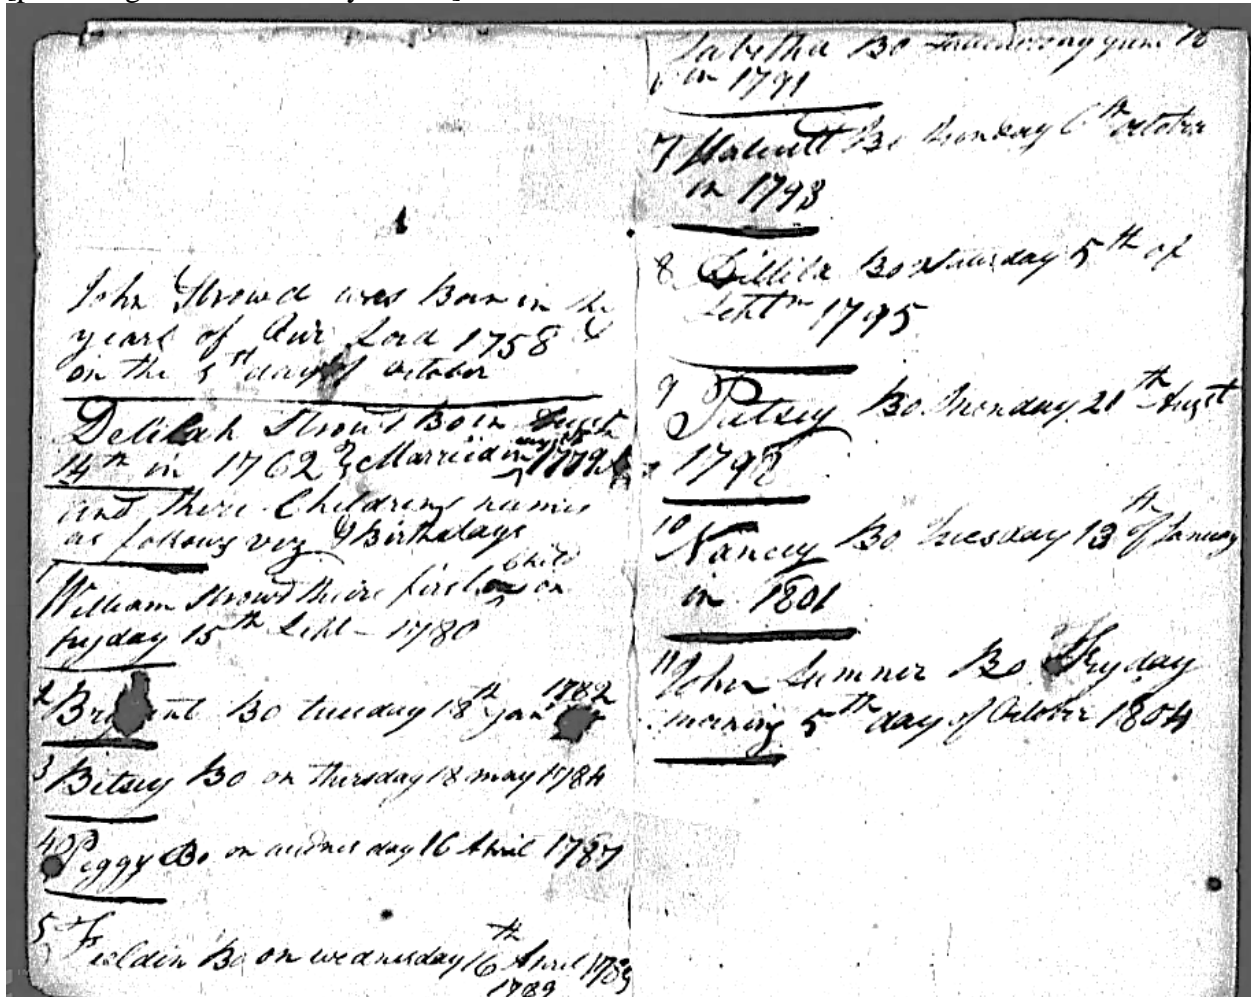 John Strowd was Born in the
yeare of Our Lord 1758 &
on the 5th day of October
Delilah Strowd Born
14th in 1762 & Married in 1779
and there Childrens names
as follows viz & Birthdays
1 William Strowd theire first Child on
fryday 15th Sept - 1780
2 Bo tuesday 18th Jan 1782
3 Betsey Bo on thursday 18 may 1784
4 Peggy Bo on wednesday 16 April 1787
5 Fieldin Bo on wednesday 16th April 1789
1789
Tabitha Bo 18
6 in 1791
7 Bo Monday 6th October
in 1793
8 Dillila Bo Saturday 5th of
Septm 1795
9 Patsey Bo Monday 20th Augst
1798
10 Nancey Bo Tuesday 13th of January
in 1801
11 John Sumner Bo Fryday
morning 5th day of October 1804